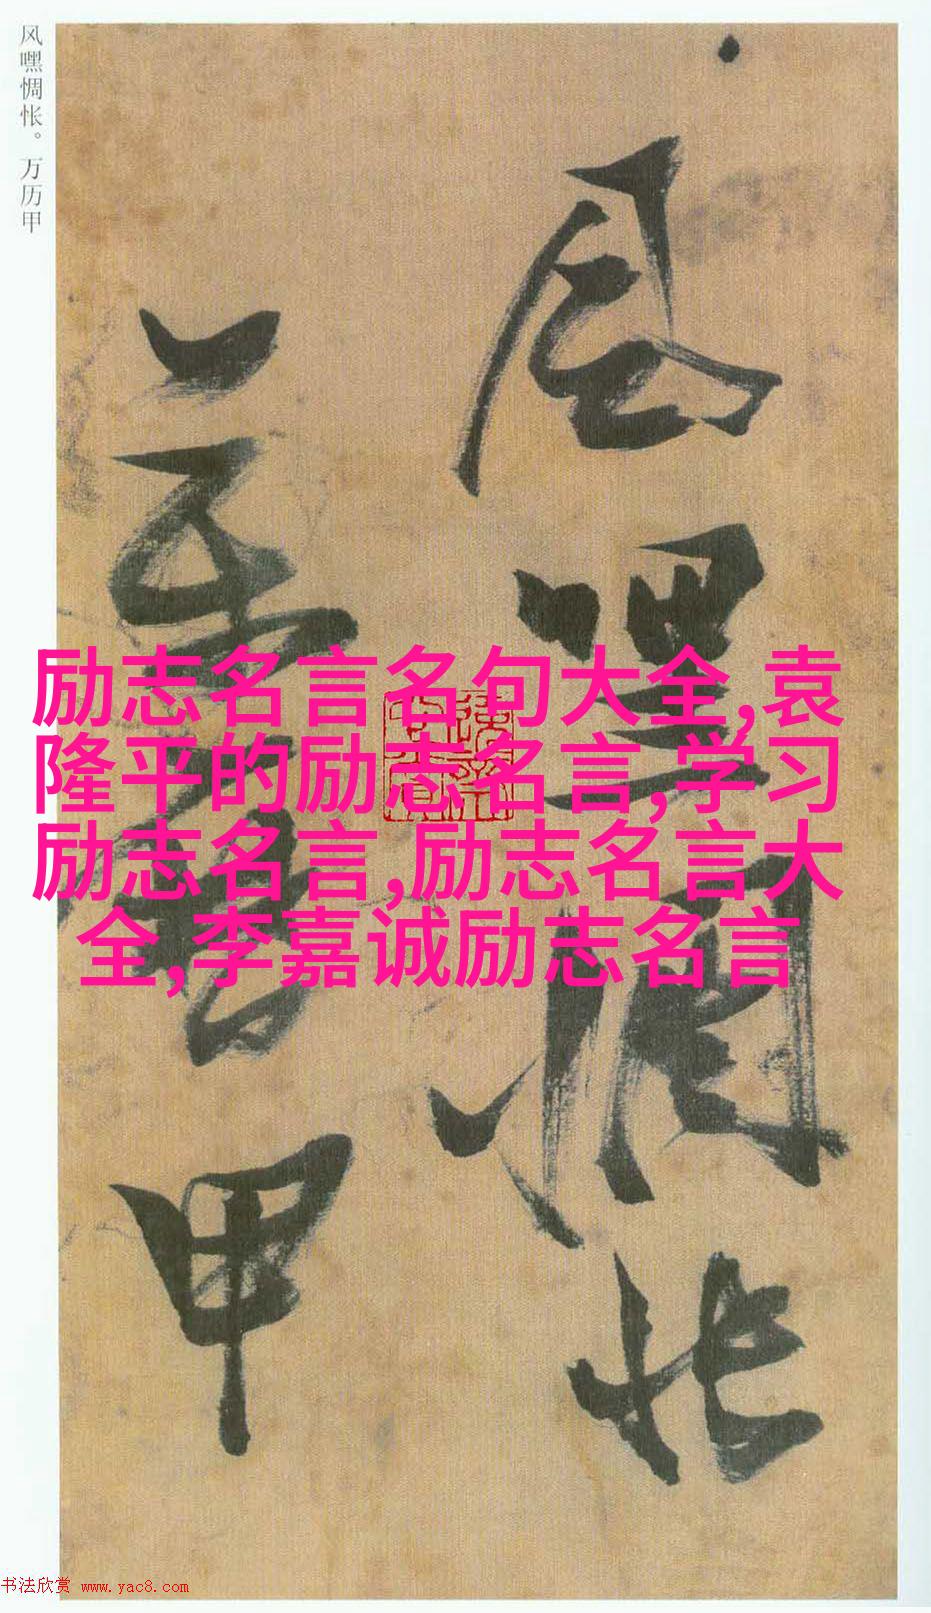 风嘿惆怅。万历甲
风嘿惆怅
万历甲
励志名言名句大全,袁
隆平的励志名言,学习
励志名言,励志名言大
全,李嘉诚励志名言
书法欣赏 www.yac8.com